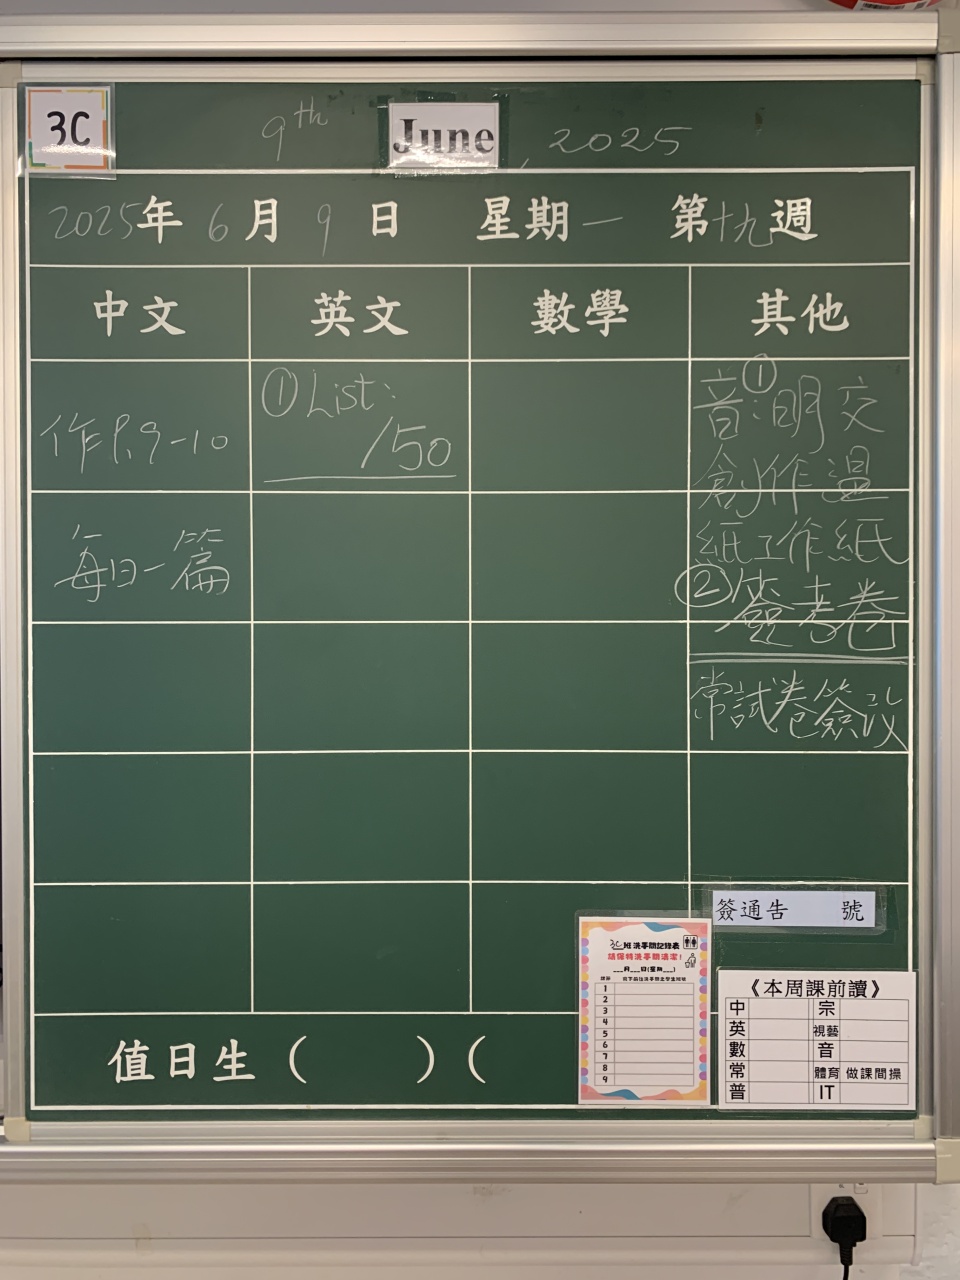 3C
9th June, 2025
2025年 6月 9日 星期一 第十九週
中文 英文 數學 其他
作P.9-10
每日一篇
① List:
/50
音:① 明交
創作溫
紙工作紙
② 簽考卷
常試卷簽改
簽通告 號
3C班洗手間記錄表
請保持洗手間清潔!
___月___日(星期___)
1
2
3
4
5
6
7
8
9
《本周課前讀》
中 宗
英 視藝
數 音
常 體育 做課間操
普 IT
值日生( )(